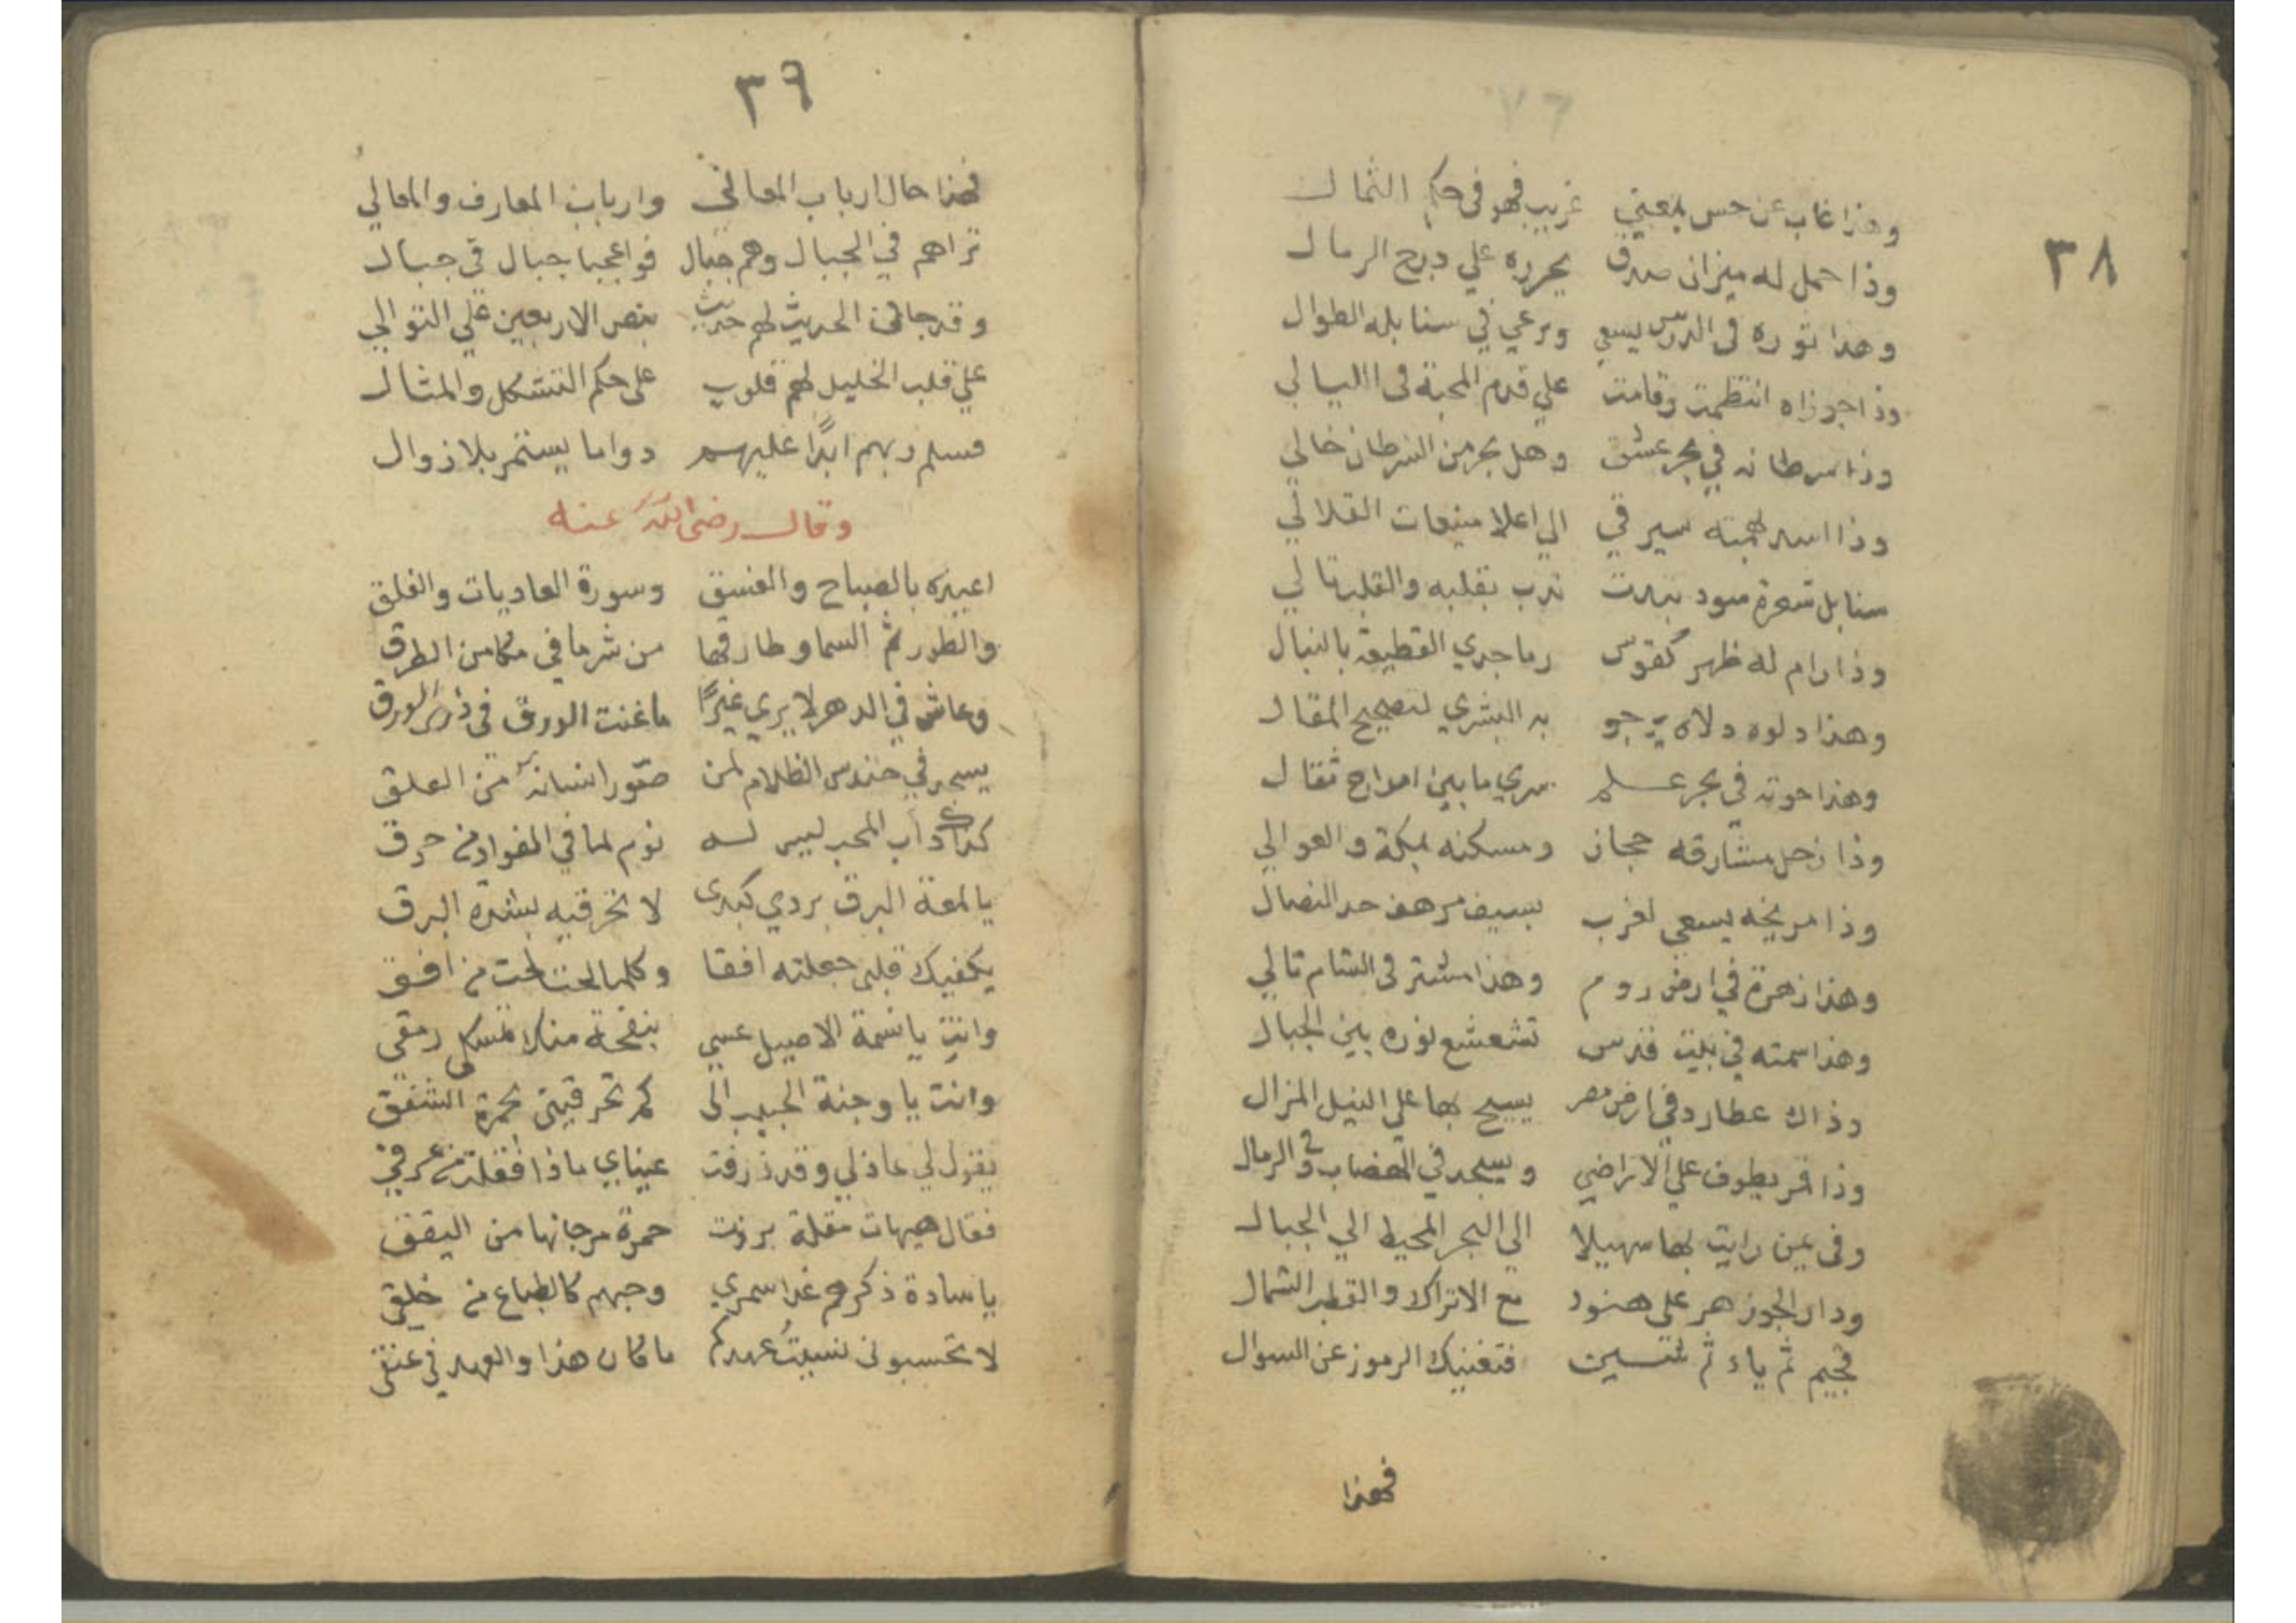 ٣٨
وهذا غاب عن حس بمعني غريب فهو في حكم الثمال
وذا حمل له ميزان صدق يحرره علي درج الرمال
وهذا ثوره في الدرس يسعي ويرعي في سنابله الطوال
وذا جوزاه انتظمت وقامت علي قدم المحبة في الليالي
وذا سرطانه في بحر عشق وهل بحر من السرطان خالي
وذا اسد لهمته سير في الي اعلا منيعات القلالي
سنابل شعرة سود تبدت ندب بقلبه والقلب تالي
وذا رام له ظهر كقوس رما جدي القطيعة بالنبال
وهذا دلوه دلاه يرجو به البشري لتصحيح المقال
وهذا حوته في بحر علم سري ما بين امواج ثقال
وذا زحل مشارقه حجاز ومسكنه بمكة والعوالي
وذا مريخه يسعي لغرب بسيف مرهف حد النصال
وهذا زهرة في ارض روم وهذا مشتر في الشام تالي
وهذا سمته في بيت قدس تشعشع نوره بين الجبال
وذاك عطارد في ارض مصر يسيح بها علي النيل المزال
وذا قمر يطوف علي الاراضي ويسجد في الهضاب و في الرمال
وفي يمن رايت بها سهيلا الي البحر المحيط الي الجبال
ودار الجوزهر علي هنود مع الاتراك والقطب الشمال
فجيم ثم ياء ثم سين فتغنيك الرموز عن السوال
فهذا
٣٩
فهذا حال ارباب المعالي وارباب المعارف والمعالي
تراهم في الجبال وهم جبال فواعجبا جبال في جبال
وقد جا في الحديث لهم حديث بنص الاربعين علي التوالي
علي قلب الخليل لهم قلوب علي حكم التشكل والمثال
فسلم ربهم ابدًا عليهم دواما يستمر بلا زوال
وقال رضي الله عنه
اعيذه بالصباح والغسق وسورة العاديات والفلق
والطور ثم السما وطارقها من شر ما في مكامن الطرق
وعاش في الدهر لا يري غيرًا ما غنت الورق في ذري الورق
يسجد في حندس الظلام لمن صور انسانه من العلق
كذاك دأب المحب ليس له نوم لما في الفواد من حرق
يا لمعة البرق بردي كبدي لا تحرقيه بشدة البرق
يكفيك قلبي جعلته افقا وكلما لحت لحت من افق
وانت يا نسمة الاصيل عسي بنفحة منك تمسكي رمقي
وانت يا وجنة الحبيب الي كم تحرقيني بحمرة الشفق
يقول لي عاذلي وقد ذرفت عيناي ماذا فقلت من عرقي
فقال هيهات مقلة برزت حمرة مرجانها من اليقق
يا سادة ذكرهم غدا سمري وحبهم كالطباع من خلقي
لا تحسبوني نسيتُ عهدكم ما كان هذا والعهد في عنقي